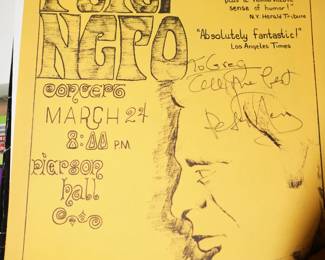 PETER
NERO
concert
MARCH 24
8:00 PM
pierson
hall
plus a remarkable
sense of humor!"
N.Y. Herald Tribune
"Absolutely fantastic!"
Los Angeles Times
To Greg
All the best